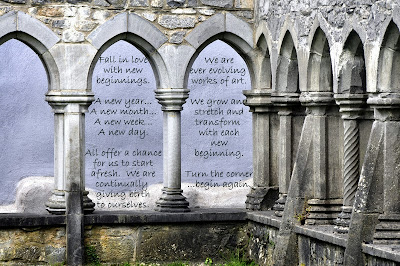 Fall in love
with new
beginnings.
A new year...
A new month...
A new week...
A new day.
All offer a chance
for us to start
afresh. We are
continually
giving birth
to ourselves.
We are
ever evolving
works of art.
We grow and
stretch and
transform
with each
new
beginning.
Turn the corner
...begin again.